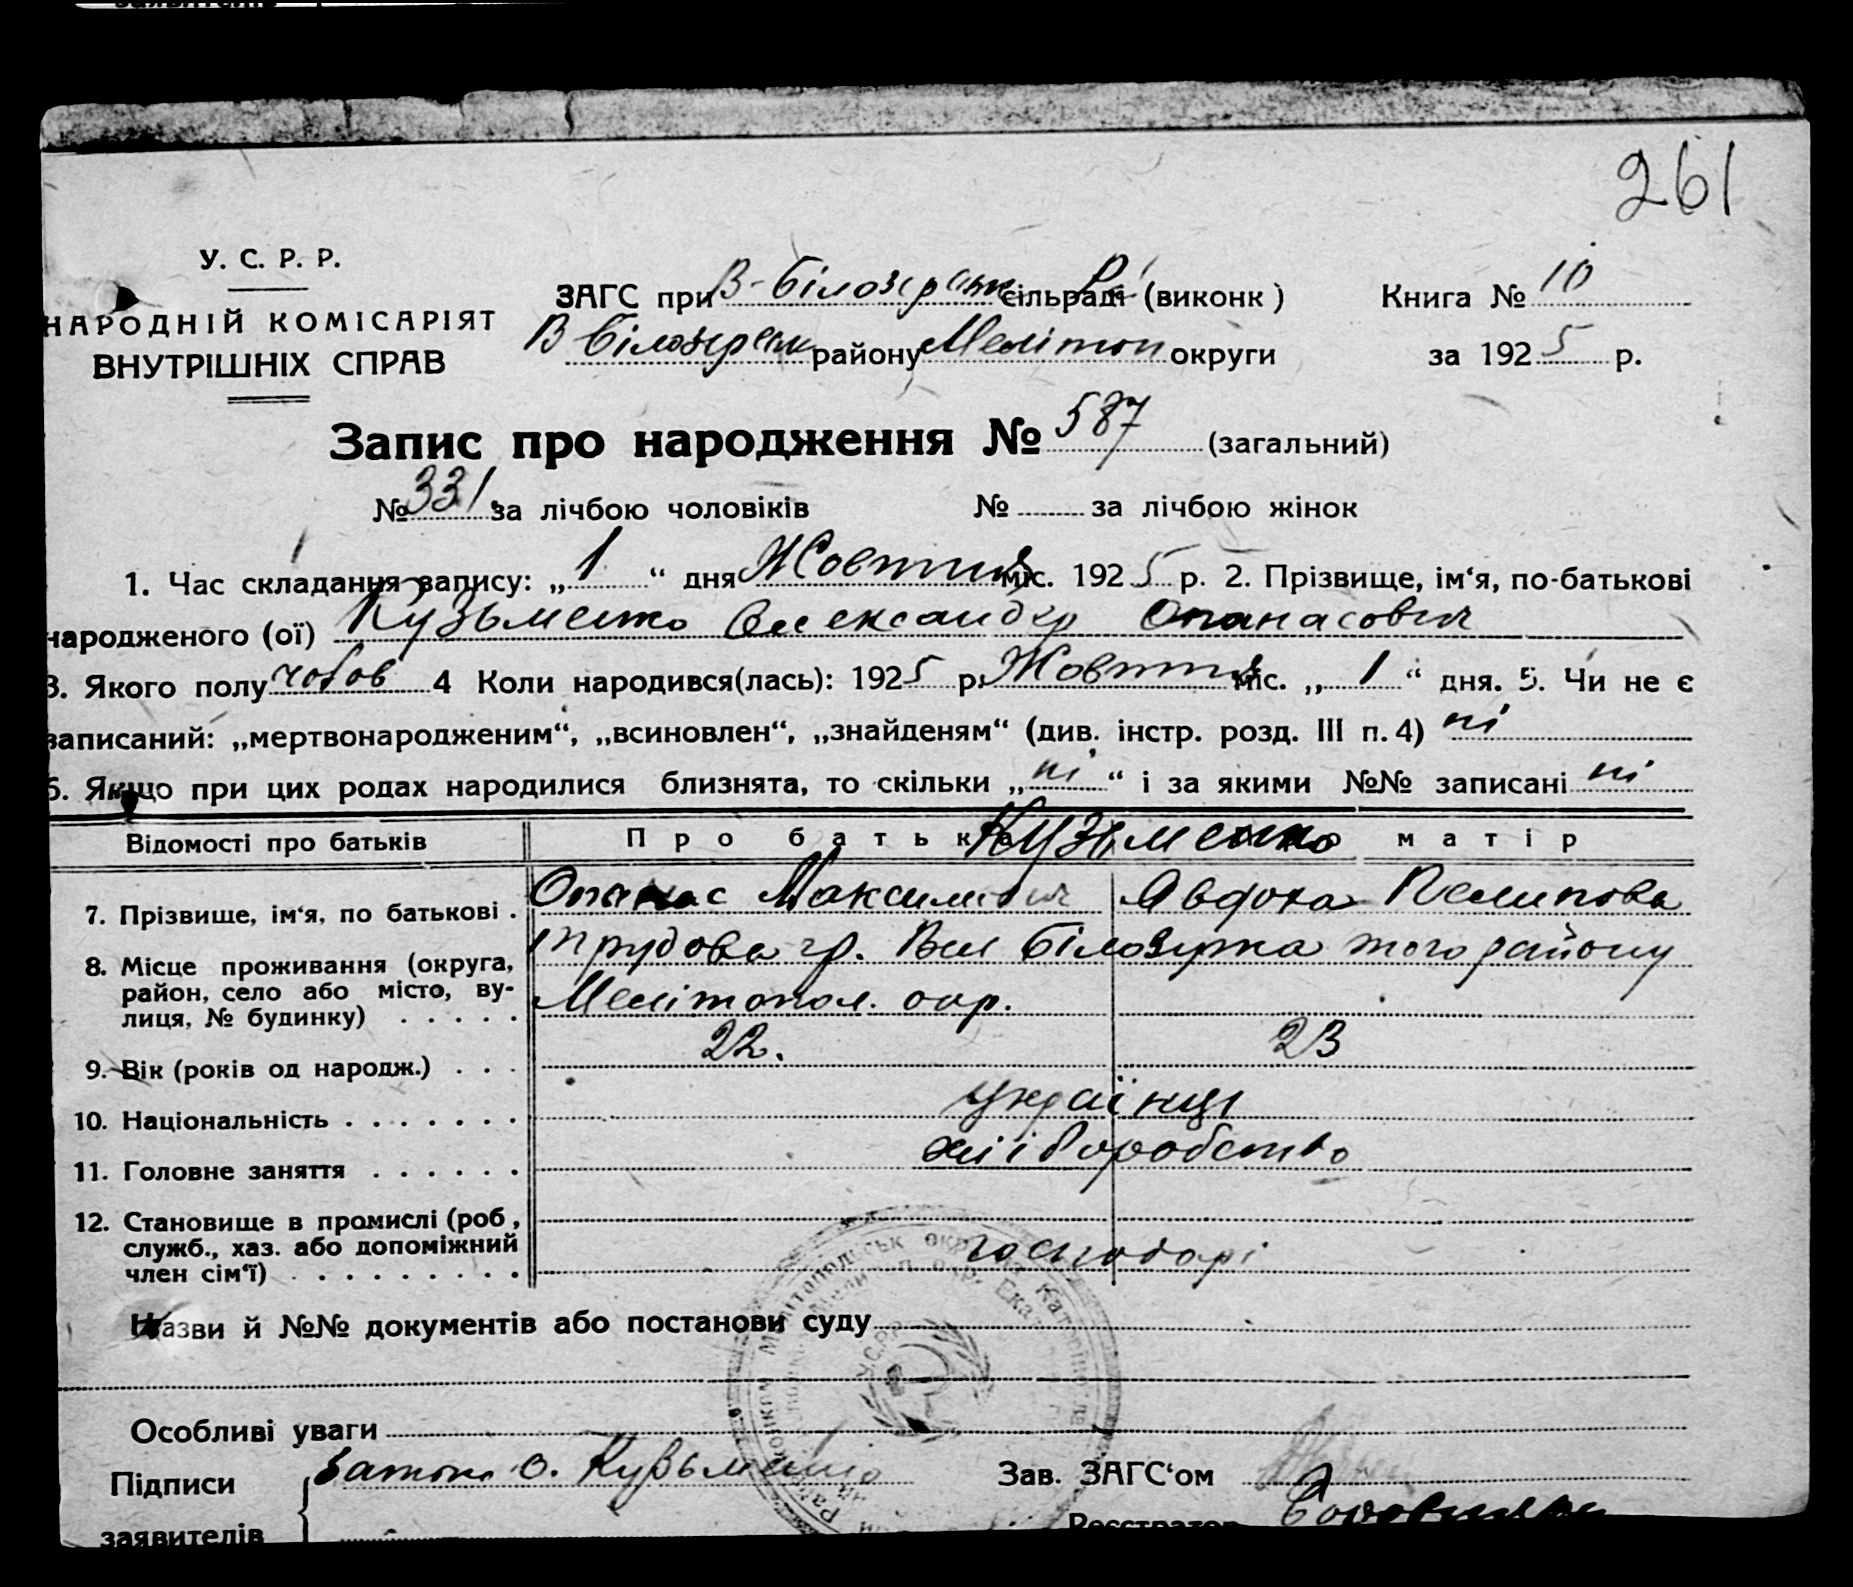 261
У. С. Р. Р.
НАРОДНІЙ КОМІСАРІЯТ
ВНУТРІШНІХ СПРАВ
ЗАГС при В-Білозерськ сільраді (виконк ) Книга № 10
В Білозерськ району Мелітоп округи за 1925 р.
Запис про народження № 587 (загальний)
№ 331. за лічбою чоловіків № за лічбою жінок
1. Час складання запису: „ 1 “ дня Жовтня міс. 1925 р. 2. Прізвище, ім‘я, по-батькові
народженого (ої) Кузьменко Олександр Опанасович
3. Якого полу чолов 4 Коли народився(лась): 1925 р. Жовтня міс. „ 1 “ дня. 5. Чи не є
записаний: „мертвонародженим“, „всиновлен“, „знайденям“ (див. інстр. розд. III п. 4) ні
6. Якщо при цих родах народилися близнята, то скільки „ ні “ і за якими №№ записані ні
Відомості про батьків Про батька Кузьменко матір
7. Прізвище, ім‘я, по батькові . Опанас Максимович Явдоха Пелипова
8. Місце проживання (округа, трудова гр. Вел Білозерка того району
район, село або місто, ву-
лиця, № будинку) . . . . . Мелітопол. окр.
9. Вік (років од народж.) . . . 22. 23
10. Національність . . . . . . . Українці
11. Головне заняття . . . . . . хліборобство
12. Становище в промислі (роб ,
служб., хаз. або допоміжний господарі
член сім‘ї) . . . . . . . . .
Назви й №№ документів або постанови суду
Особливі уваги
Підписи Кузьменко Зав. ЗАГС‘ом
заявителів Реєстратор